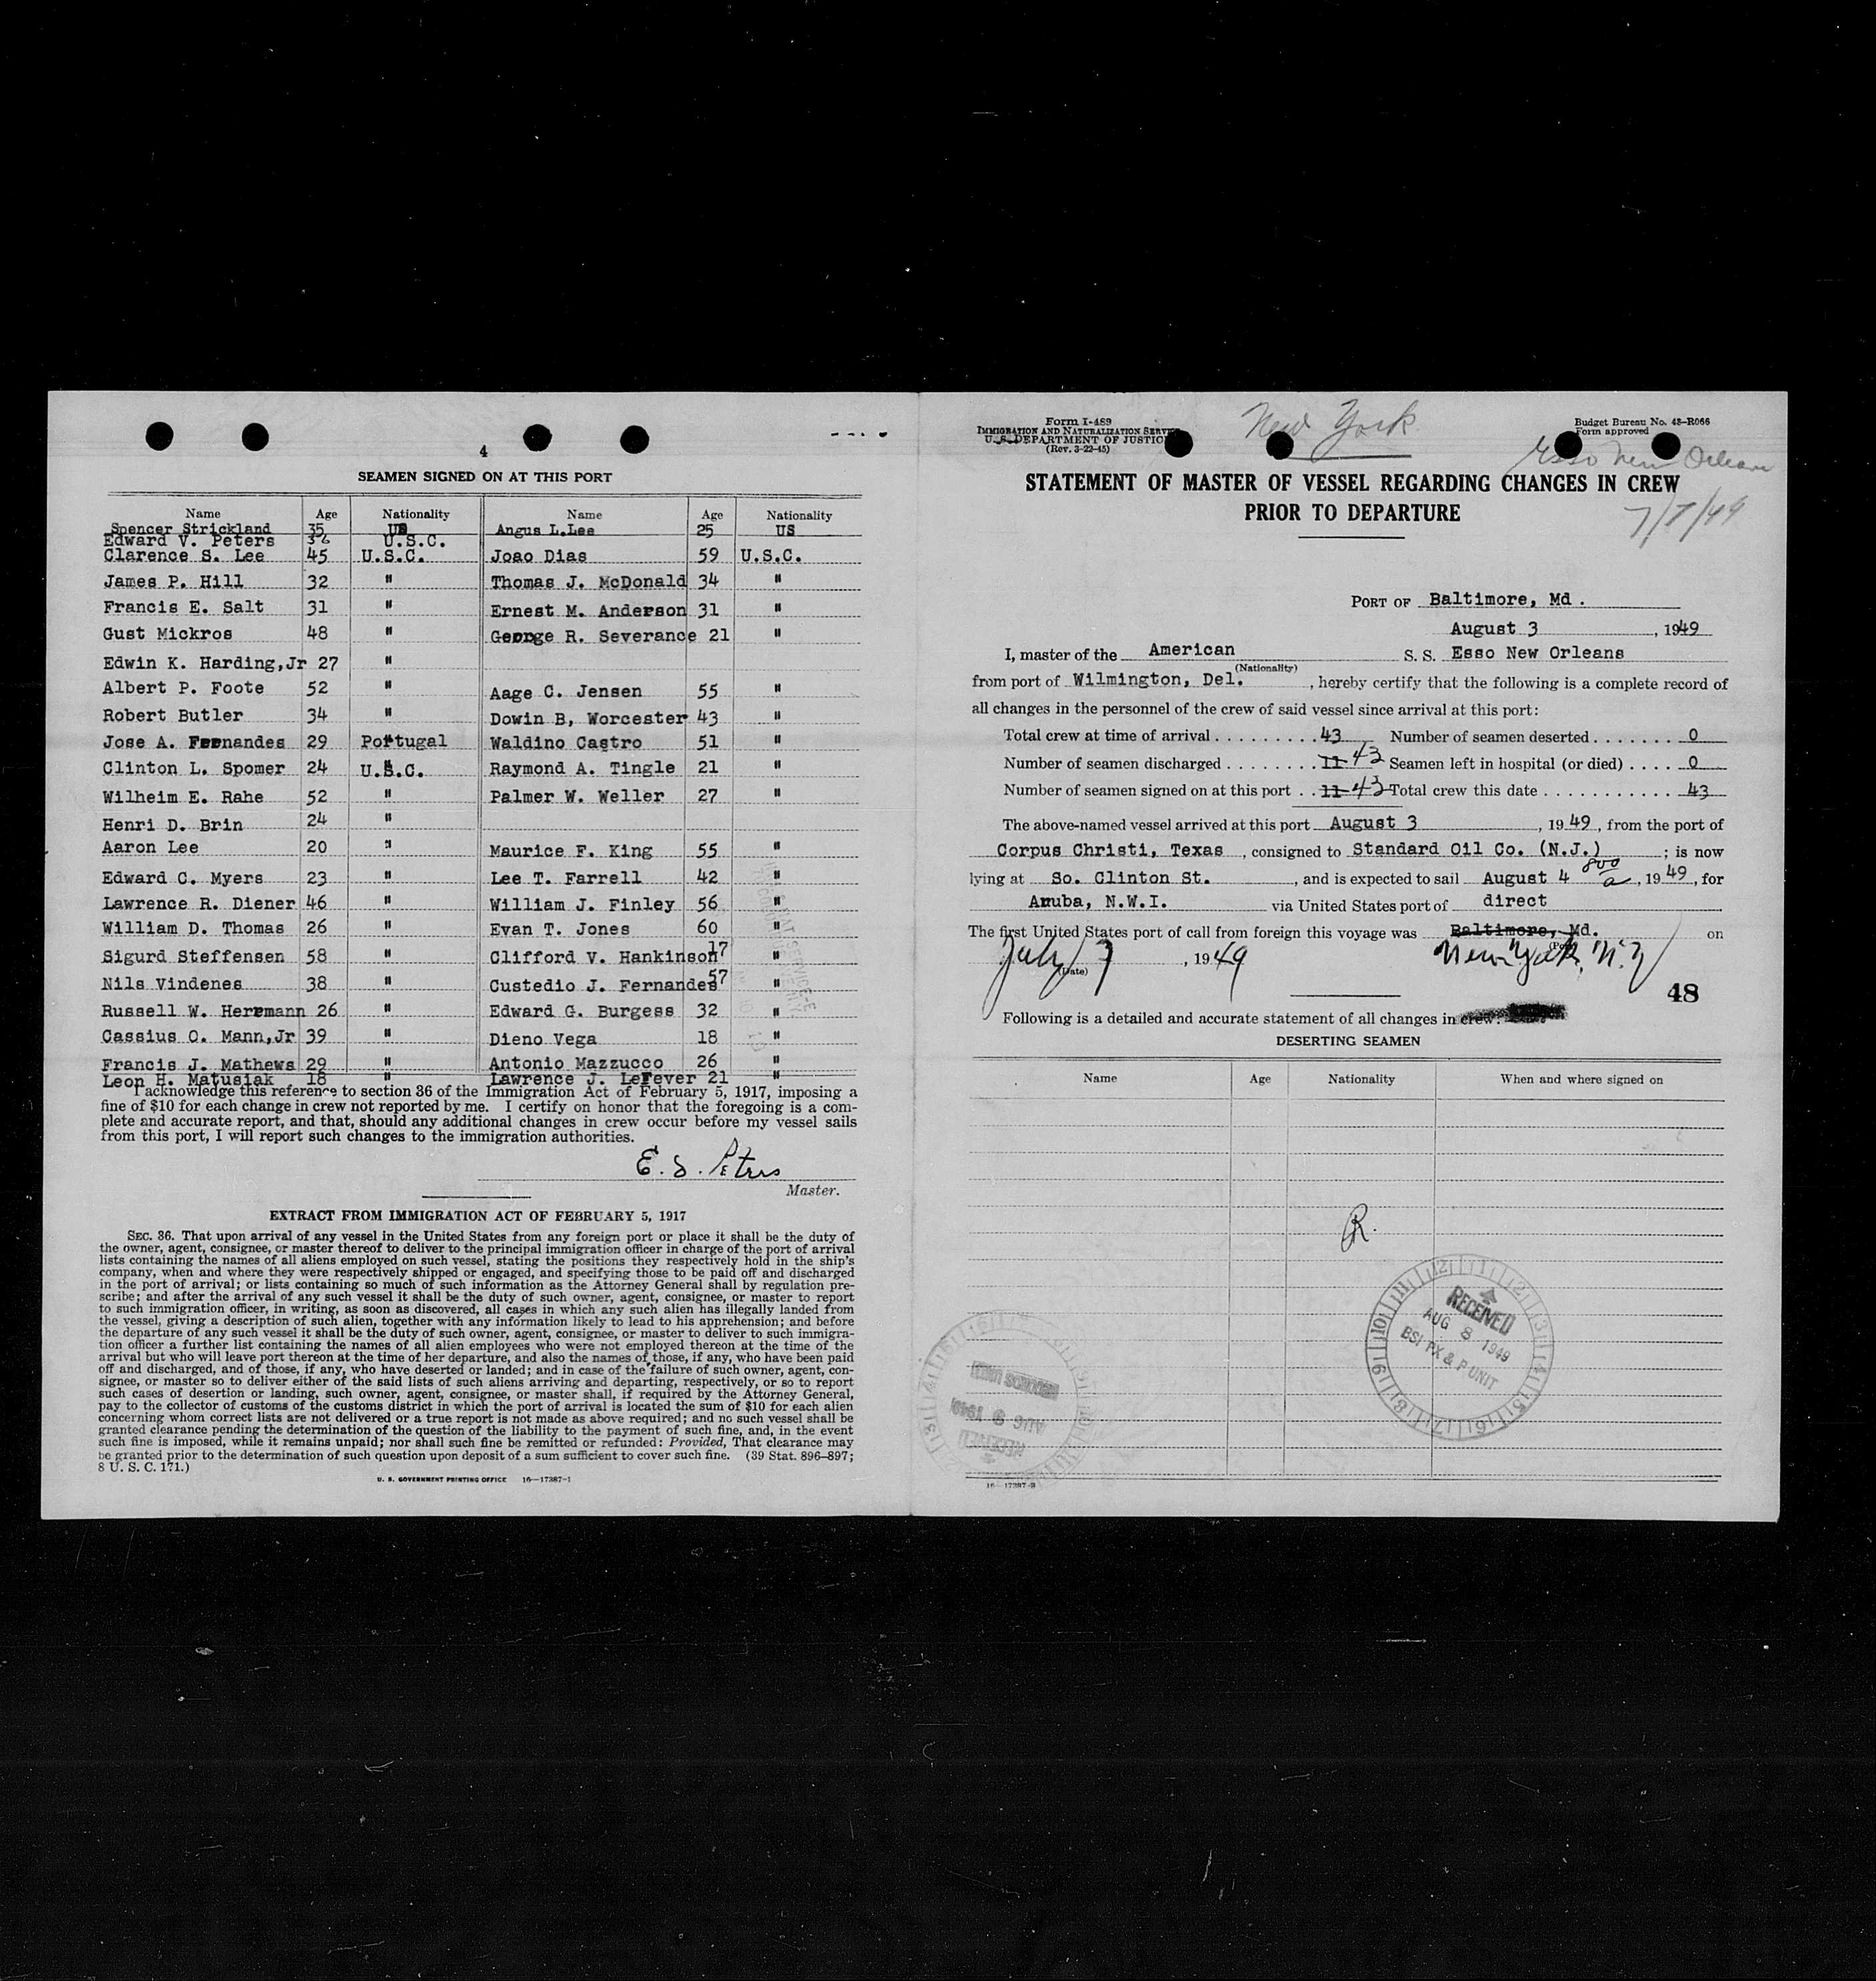 4
SEAMEN SIGNED ON AT THIS PORT
Name Age Nationality Name Age Nationality
Spencer Strickland 35 US Angus L.Lee 25 US
Edward V. Peters 36 U.S.C.
Clarence S. Lee 45 U.S.C. Joao Dias 59 U.S.C.
James P. Hill 32 " Thomas J. McDonald 34 "
Francis E. Salt 31 " Ernest M. Anderson 31 "
Gust Mickros 48 " George R. Severance 21 "
Edwin K. Harding,Jr 27 "
Albert P. Foote 52 " Aage C. Jensen 55 "
Robert Butler 34 " Dowin B, Worcester 43 "
Jose A. Fernandes 29 Portugal Waldino Castro 51 "
Clinton L. Spomer 24 U.S.C. Raymond A. Tingle 21 "
Wilheim E. Rahe 52 " Palmer W. Weller 27 "
Henri D. Brin 24 "
Aaron Lee 20 " Maurice F. King 55 "
Edward C. Myers 23 " Lee T. Farrell 42 "
Lawrence R. Diener 46 " William J. Finley 56 "
William D. Thomas 26 " Evan T. Jones 60 "
Sigurd Steffensen 58 " Clifford V. Hankinson 17 "
Nils Vindenes 38 " Custedio J. Fernandes 57 "
Russell W. Herrmann 26 " Edward G. Burgess 32 "
Cassius O. Mann,Jr 39 " Dieno Vega 18 "
Francis J. Mathews 29 " Antonio Mazzucco 26 "
Leon H. Matusiak 18 " Lawrence J. LeFever 21 "
I acknowledge this reference to section 36 of the Immigration Act of February 5, 1917, imposing a
fine of $10 for each change in crew not reported by me. I certify on honor that the foregoing is a com-
plete and accurate report, and that, should any additional changes in crew occur before my vessel sails
from this port, I will report such changes to the immigration authorities.
E. S. Peters
Master.
EXTRACT FROM IMMIGRATION ACT OF FEBRUARY 5, 1917
SEC. 36. That upon arrival of any vessel in the United States from any foreign port or place it shall be the duty of
the owner, agent, consignee, or master thereof to deliver to the principal immigration officer in charge of the port of arrival
lists containing the names of all aliens employed on such vessel, stating the positions they respectively hold in the ship's
company, when and where they were respectively shipped or engaged, and specifying those to be paid off and discharged
in the port of arrival; or lists containing so much of such information as the Attorney General shall by regulation pre-
scribe; and after the arrival of any such vessel it shall be the duty of such owner, agent, consignee, or master to report
to such immigration officer, in writing, as soon as discovered, all cases in which any such alien has illegally landed from
the vessel, giving a description of such alien, together with any information likely to lead to his apprehension; and before
the departure of any such vessel it shall be the duty of such owner, agent, consignee, or master to deliver to such immigra-
tion officer a further list containing the names of all alien employees who were not employed thereon at the time of the
arrival but who will leave port thereon at the time of her departure, and also the names of those, if any, who have been paid
off and discharged, and of those, if any, who have deserted or landed; and in case of the failure of such owner, agent, con-
signee, or master so to deliver either of the said lists of such aliens arriving and departing, respectively, or so to report
such cases of desertion or landing, such owner, agent, consignee, or master shall, if required by the Attorney General,
pay to the collector of customs of the customs district in which the port of arrival is located the sum of $10 for each alien
concerning whom correct lists are not delivered or a true report is not made as above required; and no such vessel shall be
granted clearance pending the determination of the question of the liability to the payment of such fine, and, in the event
such fine is imposed, while it remains unpaid; nor shall such fine be remitted or refunded: Provided, That clearance may
be granted prior to the determination of such question upon deposit of a sum sufficient to cover such fine. (39 Stat. 896-897;
8 U. S. C. 171.)
U. S. GOVERNMENT PRINTING OFFICE 16—17387-1
Form I-489
IMMIGRATION AND NATURALIZATION SERVICE
U. S. DEPARTMENT OF JUSTICE
(Rev. 3-22-45)
New York
Budget Bureau No. 43-R066
Form approved
Esso New Orleans
7/7/49
STATEMENT OF MASTER OF VESSEL REGARDING CHANGES IN CREW
PRIOR TO DEPARTURE
PORT OF Baltimore, Md.
August 3, 1949
I, master of the American S. S. Esso New Orleans
(Nationality)
from port of Wilmington, Del., hereby certify that the following is a complete record of
all changes in the personnel of the crew of said vessel since arrival at this port:
Total crew at time of arrival . . . . . . . . . 43 Number of seamen deserted . . . . . . . 0
Number of seamen discharged . . . . . . . . 11 43 Seamen left in hospital (or died) . . . . 0
Number of seamen signed on at this port . . 11 43 Total crew this date . . . . . . . . . . . . 43
The above-named vessel arrived at this port August 3, 1949, from the port of
Corpus Christi, Texas, consigned to Standard Oil Co. (N.J.); is now
lying at So. Clinton St., and is expected to sail August 4 800 a, 1949, for
Aruba, N.W.I. via United States port of direct
The first United States port of call from foreign this voyage was Baltimore, Md. on
July 7, 1949 New York, N.Y
(Date) (Port)
48
Following is a detailed and accurate statement of all changes in crew:
DESERTING SEAMEN
Name Age Nationality When and where signed on
R.
RECEIVED
AUG 8 1949
BSI PX & P UNIT
16—17387-3